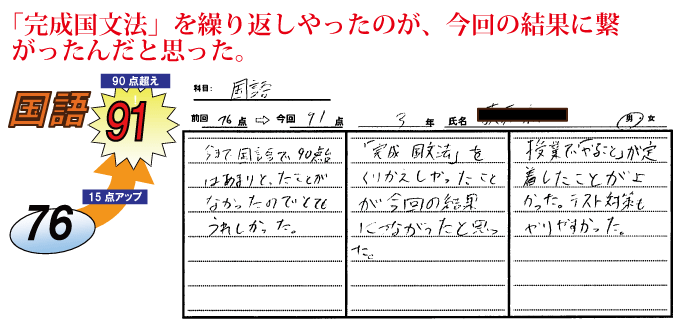 「完成国文法」を繰り返しやったのが、今回の結果に繋
がったんだと思った。
90点超え
国語
91
15点アップ
76
科目: 国語
前回 76 点 ⇨ 今回 91 点 3 年 氏名 男・女
今まで国語で、90点台
はあまりとったことが
なかったのでとても
うれしかった。
「完成 国文法」を
くりかえしやったこと
が今回の結果
につながったと思っ
た。
授業で「やること」が定
着したことがよ
かった。テスト対策も
やりやすかった。